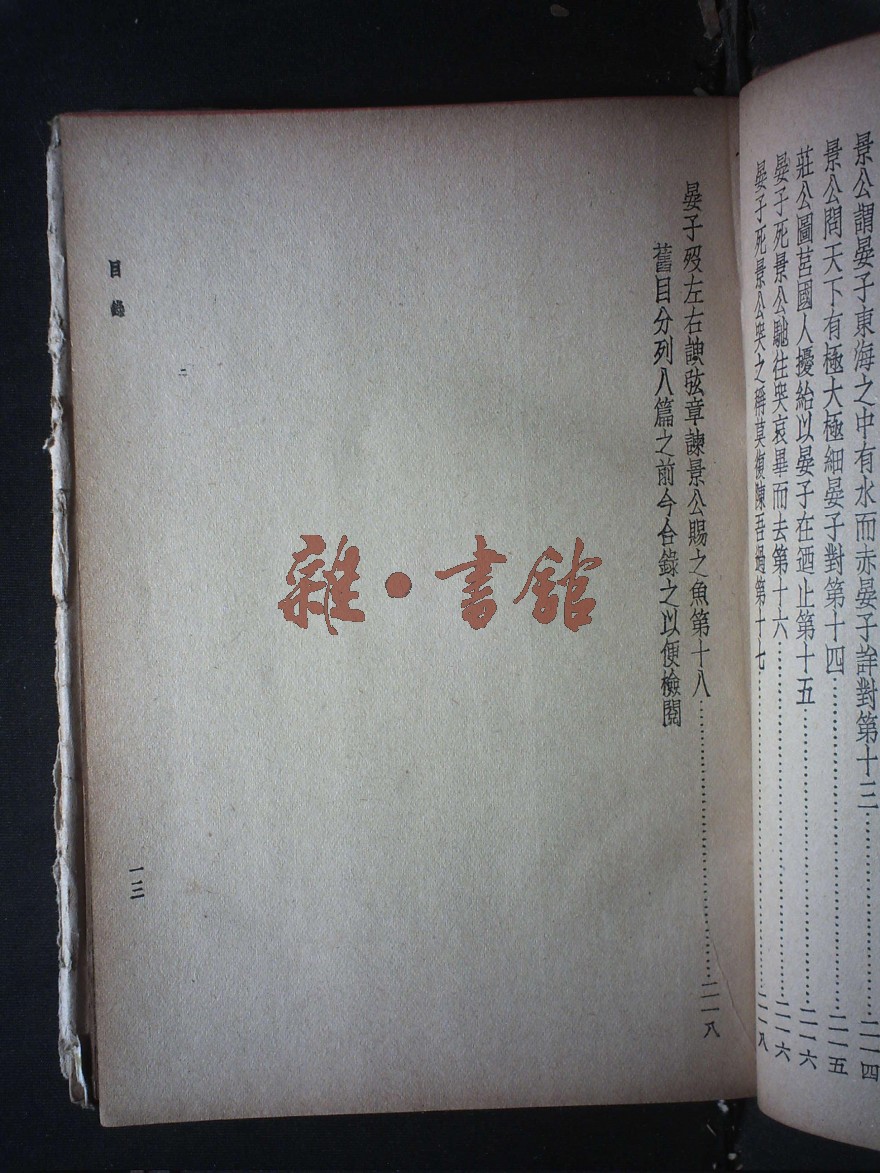 景公謂晏子東海之中有水而赤晏子詳對第十三……二一四
景公問天下有極大極細晏子對第十四……二一五
莊公圖莒國人擾紿以晏子在迺止第十五……二一六
晏子死景公馳往哭哀畢而去第十六……二一六
晏子死景公哭之稱莫復陳吾過第十七……二一八
晏子歿左右諛弦章諫景公賜之魚第十八……二一八
舊目分列八篇之前今合錄之以便檢閱
目錄
一三
雜·書館